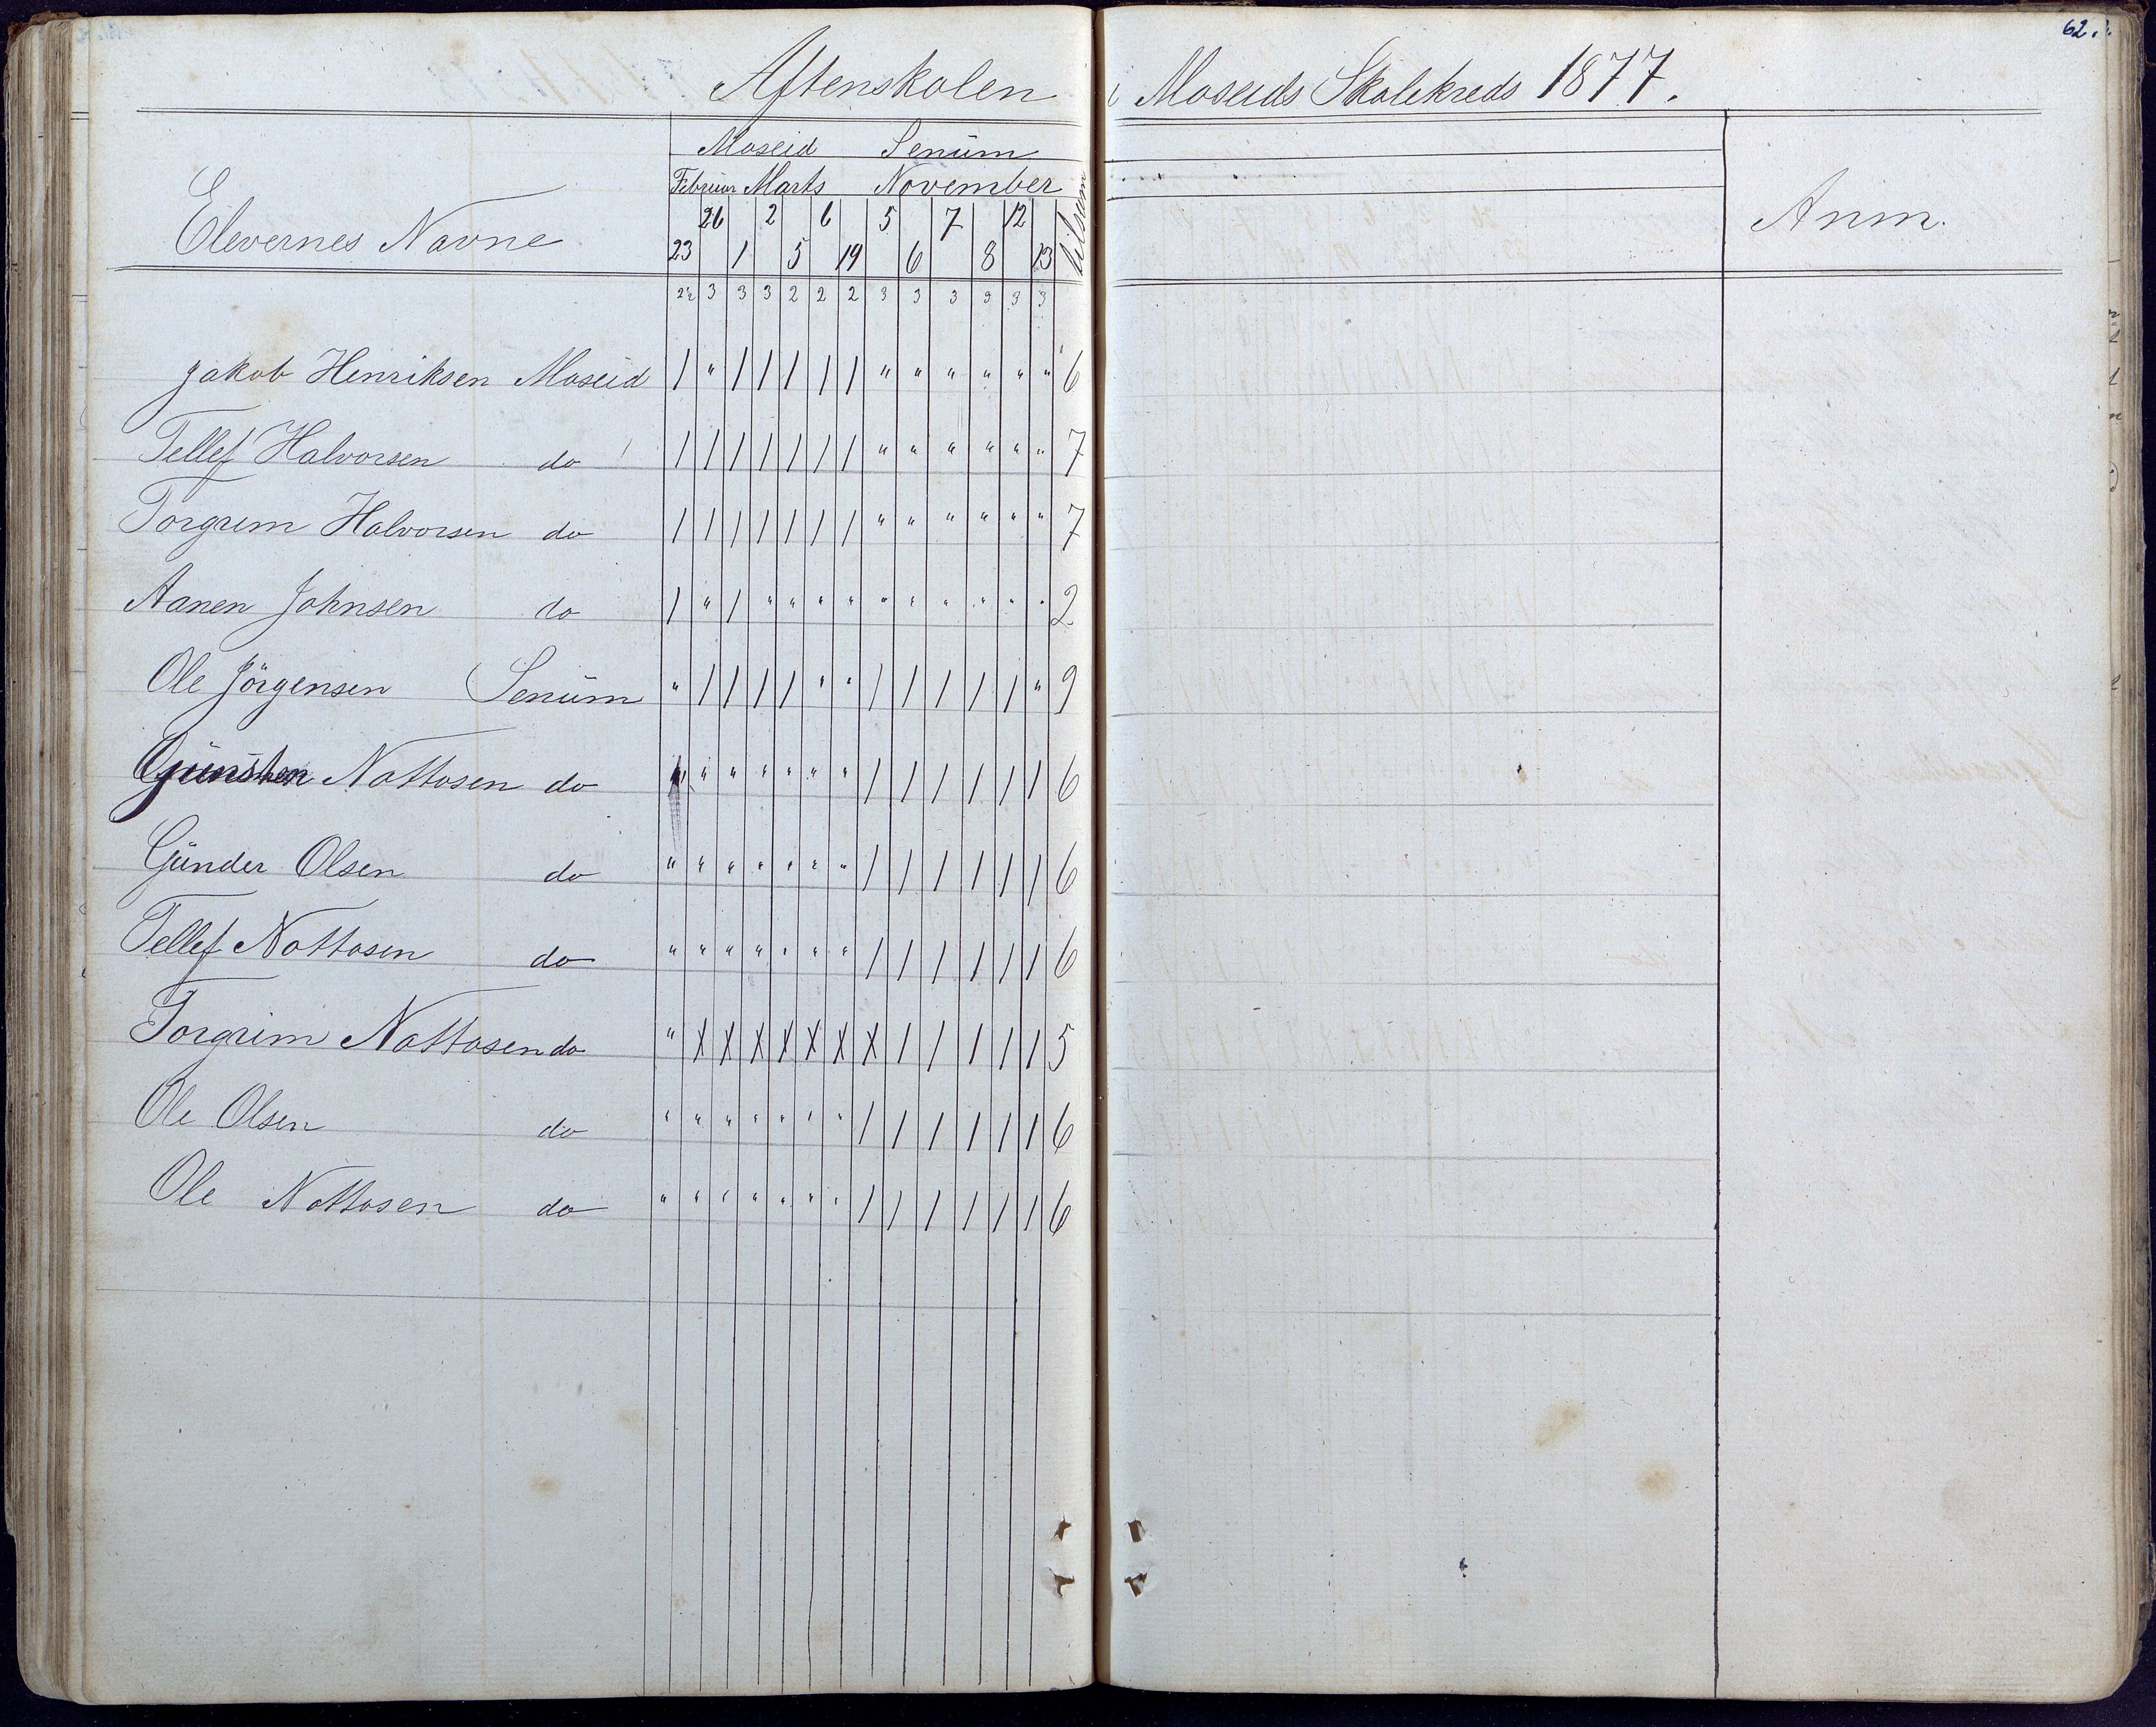 62.
Aftenskolen i Moseids Skolekreds 1877.
Moseid Senüm
Februar Marts November
Elevernes Navne
tilsam
Anm.
26 2 6 5 7 12
23 1 5 19 6 8 13
2½ 3 3 3 2 2 2 3 3 3 3 3 3
Jakob Henriksen Moseid 1 " 1 1 1 1 1 " " " " " " 6
Tellef Halvorsen do 1 1 1 1 1 1 1 " " " " " " 7
Torgrim Halvorsen do 1 1 1 1 1 1 1 " " " " " " 7
Aanen Johnsen do 1 " 1 " " " " " " " " " " 2
Ole Jörgensen Senüm " 1 1 1 1 " " 1 1 1 1 1 " 9
Günsten Nottosen do " " " " " " " 1 1 1 1 1 1 6
Günder Olsen do " " " " " " " 1 1 1 1 1 1 6
Tellef Nottosen do " " " " " " " 1 1 1 1 1 1 6
Torgrim Nottosen do " X X X X X X X 1 1 1 1 1 5
Ole Olsen do " " " " " " " 1 1 1 1 1 1 6
Ole Nottosen do " " " " " " " 1 1 1 1 1 1 6